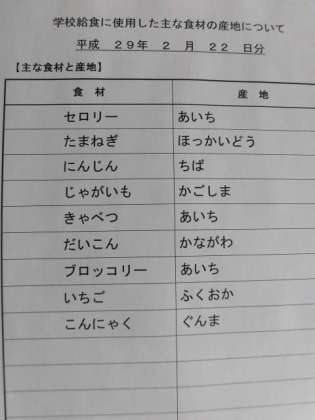 学校給食に使用した主な食材の産地について
平成 29年 2 月 22 日分
【主な食材と産地】
食 材 産 地
セロリー あいち
たまねぎ ほっかいどう
にんじん ちば
じゃがいも かごしま
きゃべつ あいち
だいこん かながわ
ブロッコリー あいち
いちご ふくおか
こんにゃく ぐんま